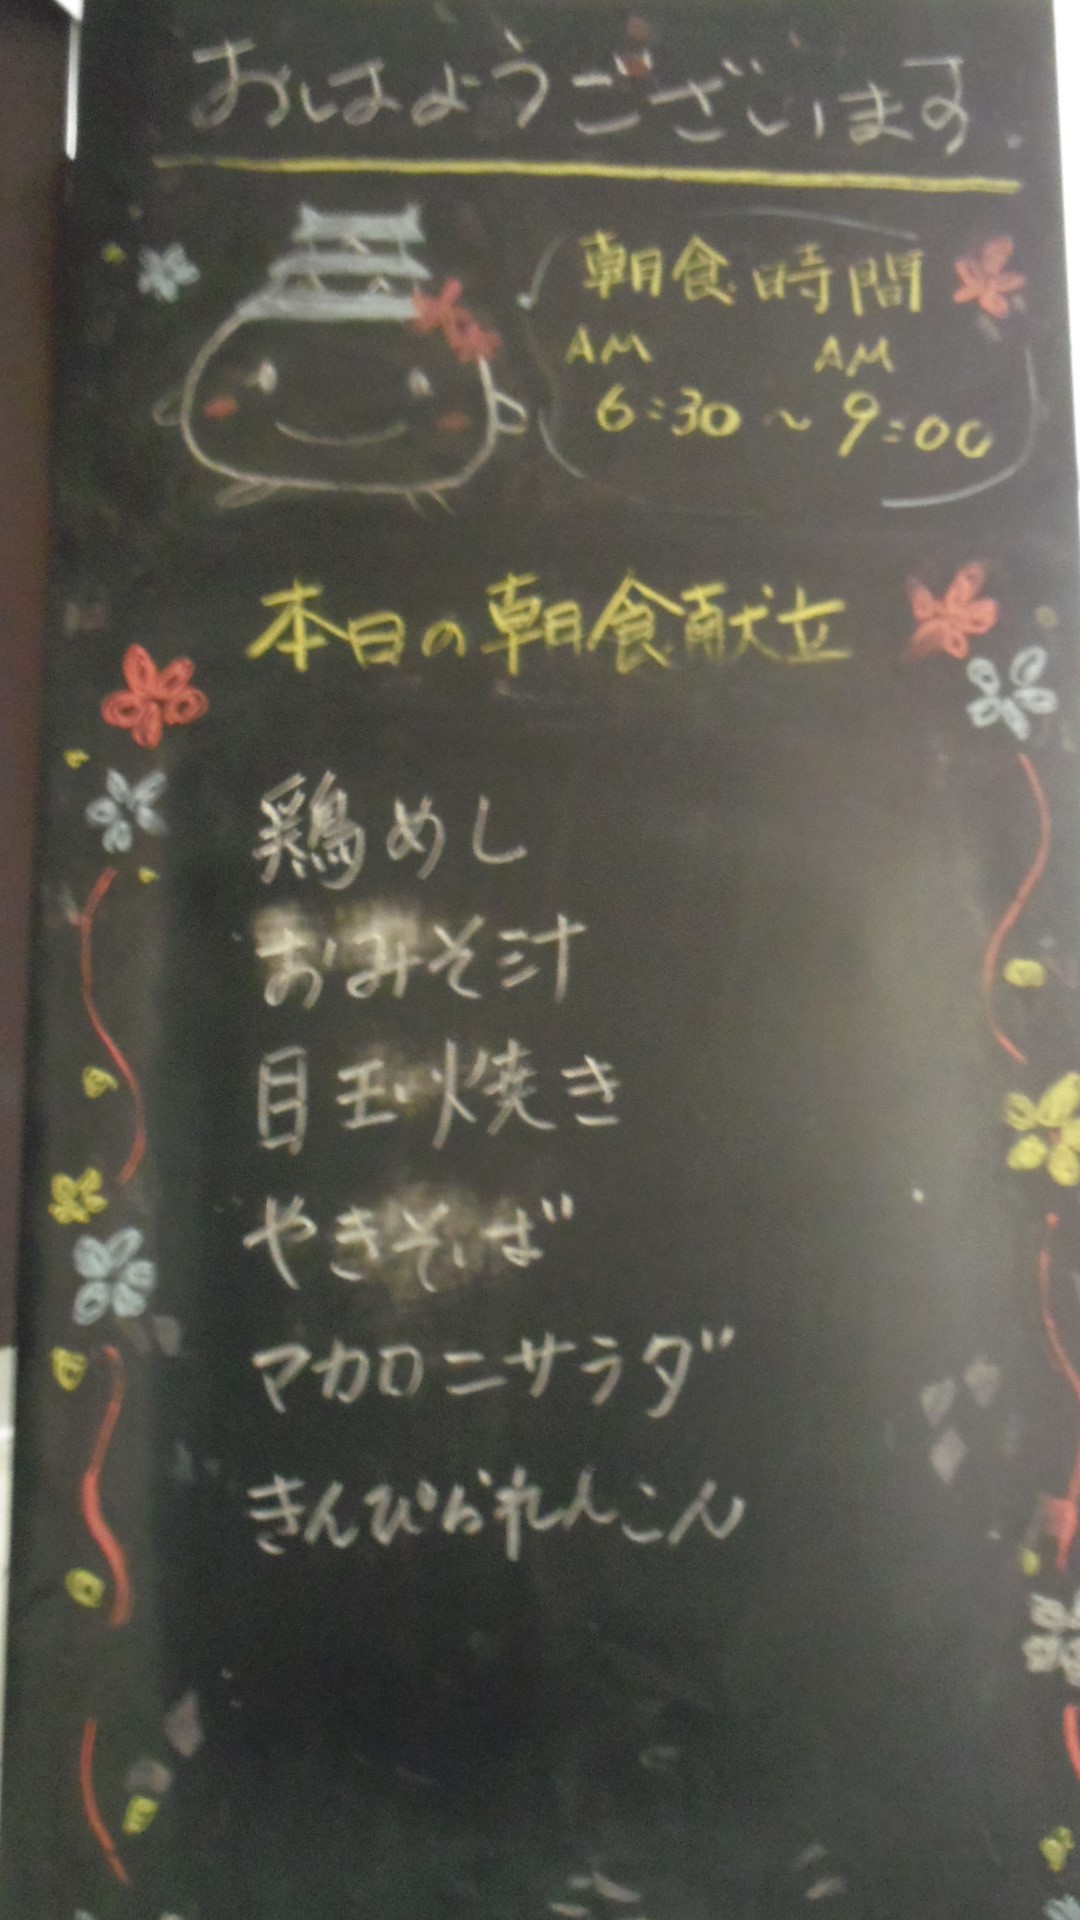 おはようございます
朝食時間
AM AM
6:30 ~ 9:00
本日の朝食献立
鶏めし
おみそ汁
目玉焼き
やきそば
マカロニサラダ
きんぴられんこん